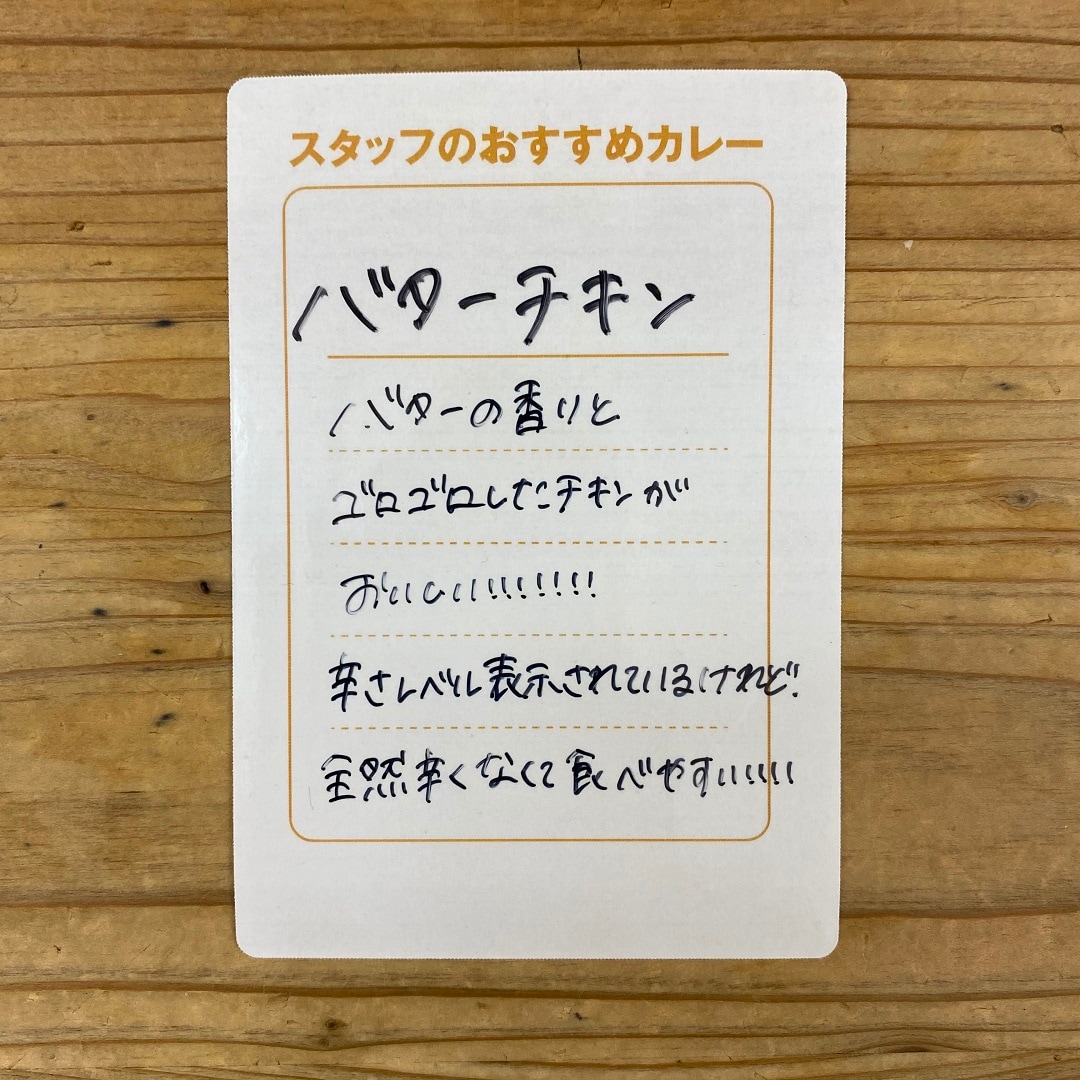 スタッフのおすすめカレー
バターチキン
バターの香りと
ゴロゴロしたチキンが
おいしい!!!!!!!!
辛さレベル表示されているけれど!
全然辛くなくて食べやすい!!!!!